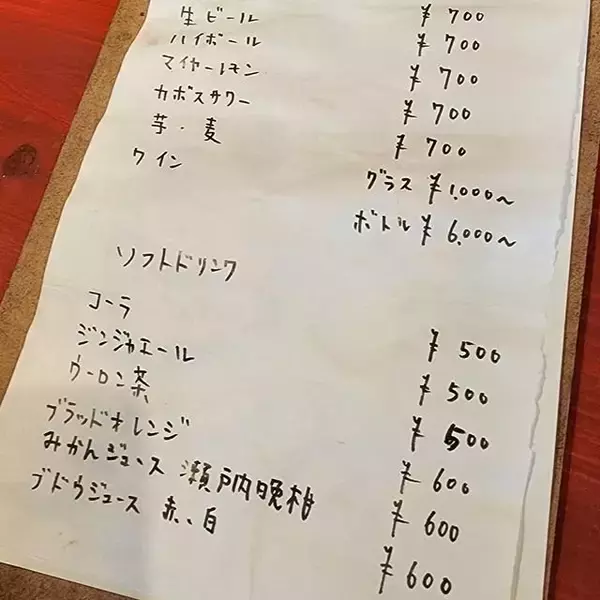 生ビール ¥700
ハイボール ¥700
マイヤーレモン ¥700
カボスサワー ¥700
芋・麦 ¥700
ワイン グラス ¥1,000〜
ボトル ¥6,000〜
ソフトドリンク
コーラ ¥500
ジンジャエール ¥500
ウーロン茶 ¥500
ブラッドオレンジ ¥600
みかんジュース 瀬戸内晩柑 ¥600
ブドウジュース 赤、白 ¥600